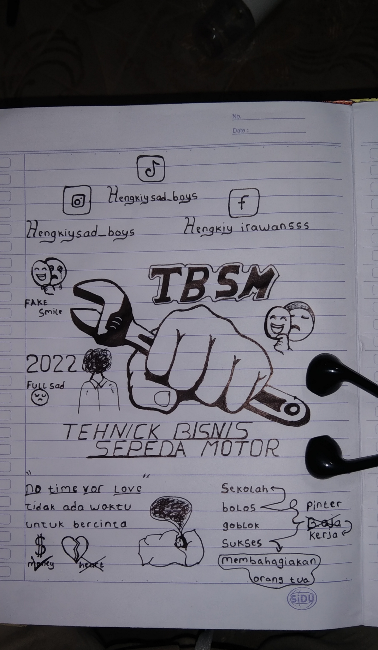 No.
Date:
Hengkiysad_boys
Hengkiysad_boys
Hengkiy irawansss
TBSM
FAKE
Smile
2022
Full sad
TEHNICK BISNIS
SEPEDA MOTOR
" no time vor Love "
tidak ada waktu
untuk bercinta
money
heart
Sekolah
bolos
goblok
Sukses
Pinter
kerja
membahagiakan
orang tua
SiDU